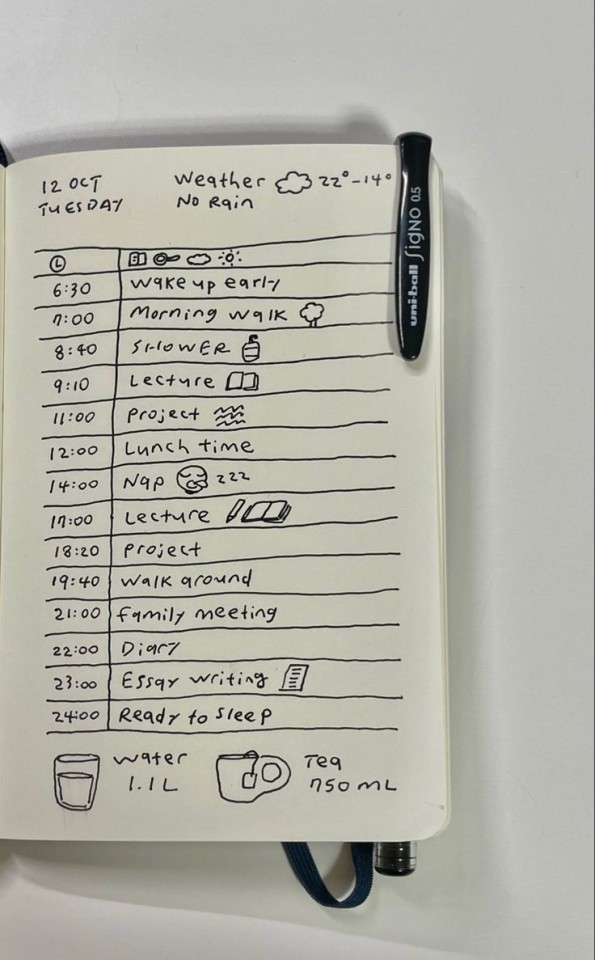 12 OCT
TUESDAY
Weather 22°-14°
No Rain
6:30 Wake up early
7:00 Morning walk
8:40 SHOWER
9:10 Lecture
11:00 Project
12:00 Lunch time
14:00 Nap zzz
17:00 Lecture
18:20 Project
19:40 Walk around
21:00 Family meeting
22:00 Diary
23:00 Essay writing
24:00 Ready to sleep
Water
1.1L
Tea
750 mL
uni-ball SigNO 0.5